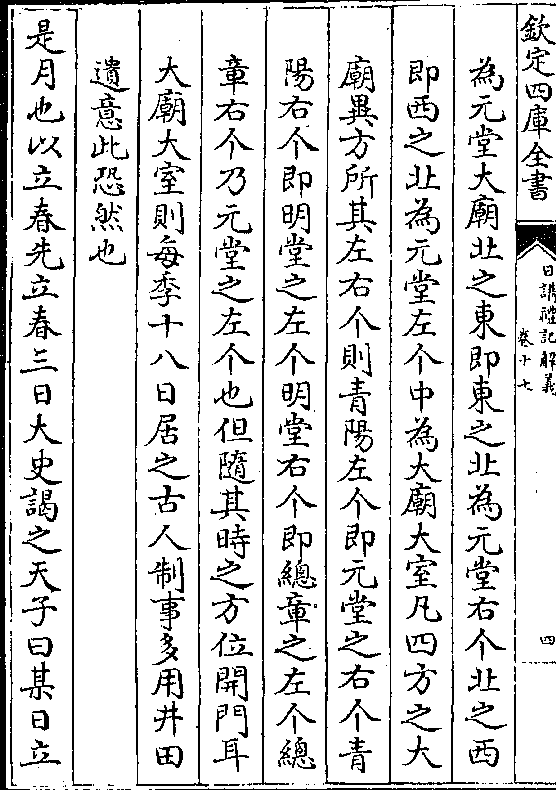 欽定四庫全書
日講禮記解義
卷十七
四
為元堂大廟北之東即東之北為元堂右个北之西
即西之北為元堂左个中為大廟大室凡四方之大
廟異方所其左右个則青陽左个即元堂之右个青
陽右个即明堂之左个明堂右个即總章之左个總
章右个乃元堂之左个也但隨其時之方位開門耳
大廟大室則每季十八日居之古人制事多用井田
遺意此恐然也
是月也以立春先立春三日大史謁之天子曰某日立